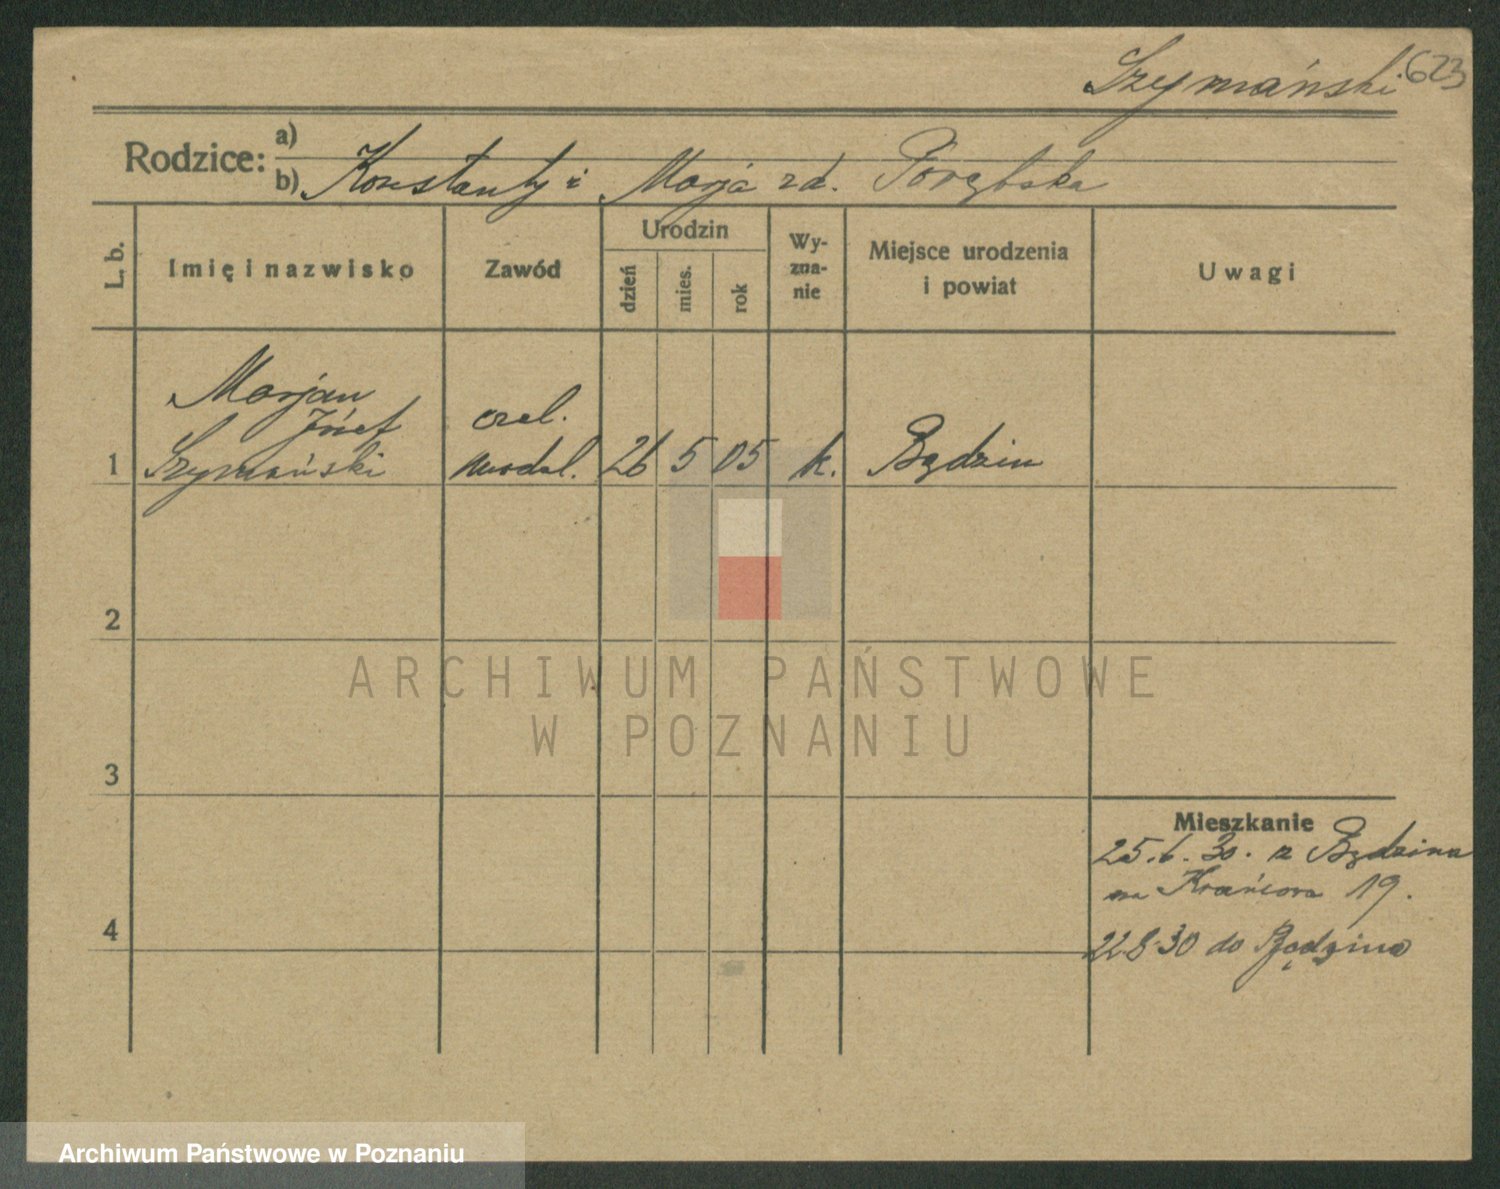 Szymański 623
Rodzice: a)
b) Konstanty i Marja zd. Porębska
L. b.
Imię i nazwisko
Zawód
Urodzin
dzień
mies.
rok
Wy-
zna-
nie
Miejsce urodzenia
i powiat
Uwagi
Marjan
Józef
1 Szymański
czel.
modal. 26 5 05 k. Będzin
2
3
4
Mieszkanie
25.6.30. z Będzina
na Krańcowa 19.
22.8.30 do Będzina
ARCHIWUM PAŃSTWOWE
W POZNANIU
Archiwum Państwowe w Poznaniu